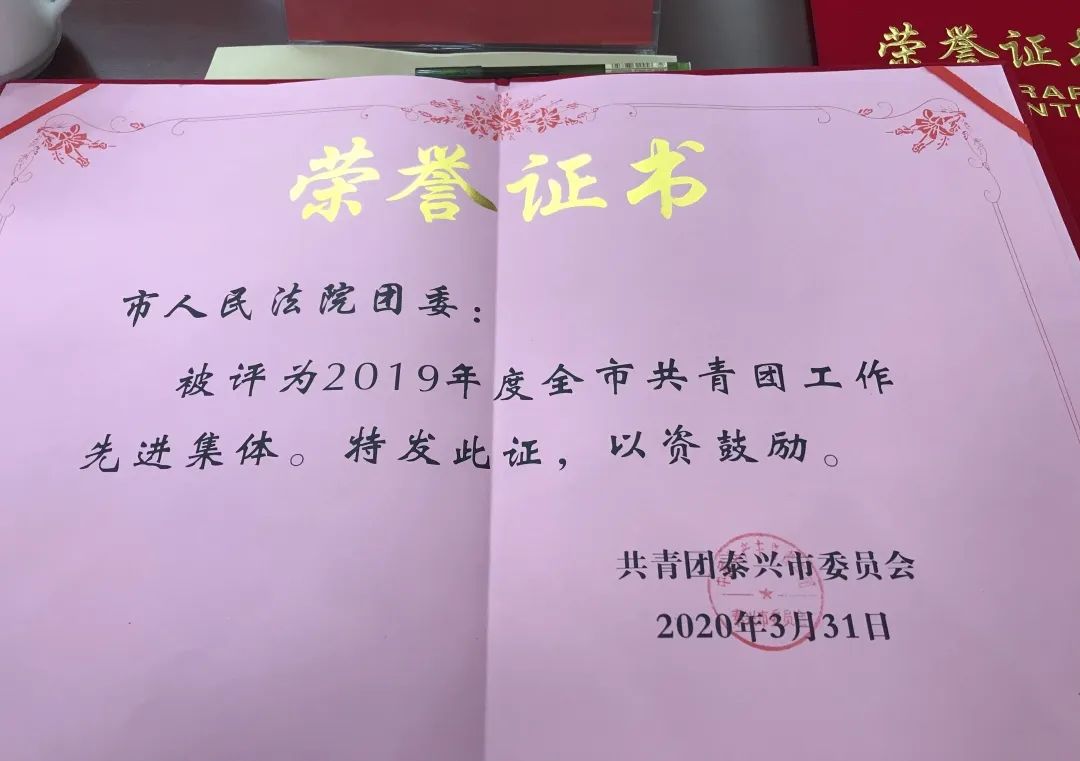 荣誉证
荣誉证书
市人民法院团委：
被评为2019年度全市共青团工作
先进集体。特发此证，以资鼓励。
共青团泰兴市委员会
2020年3月31日